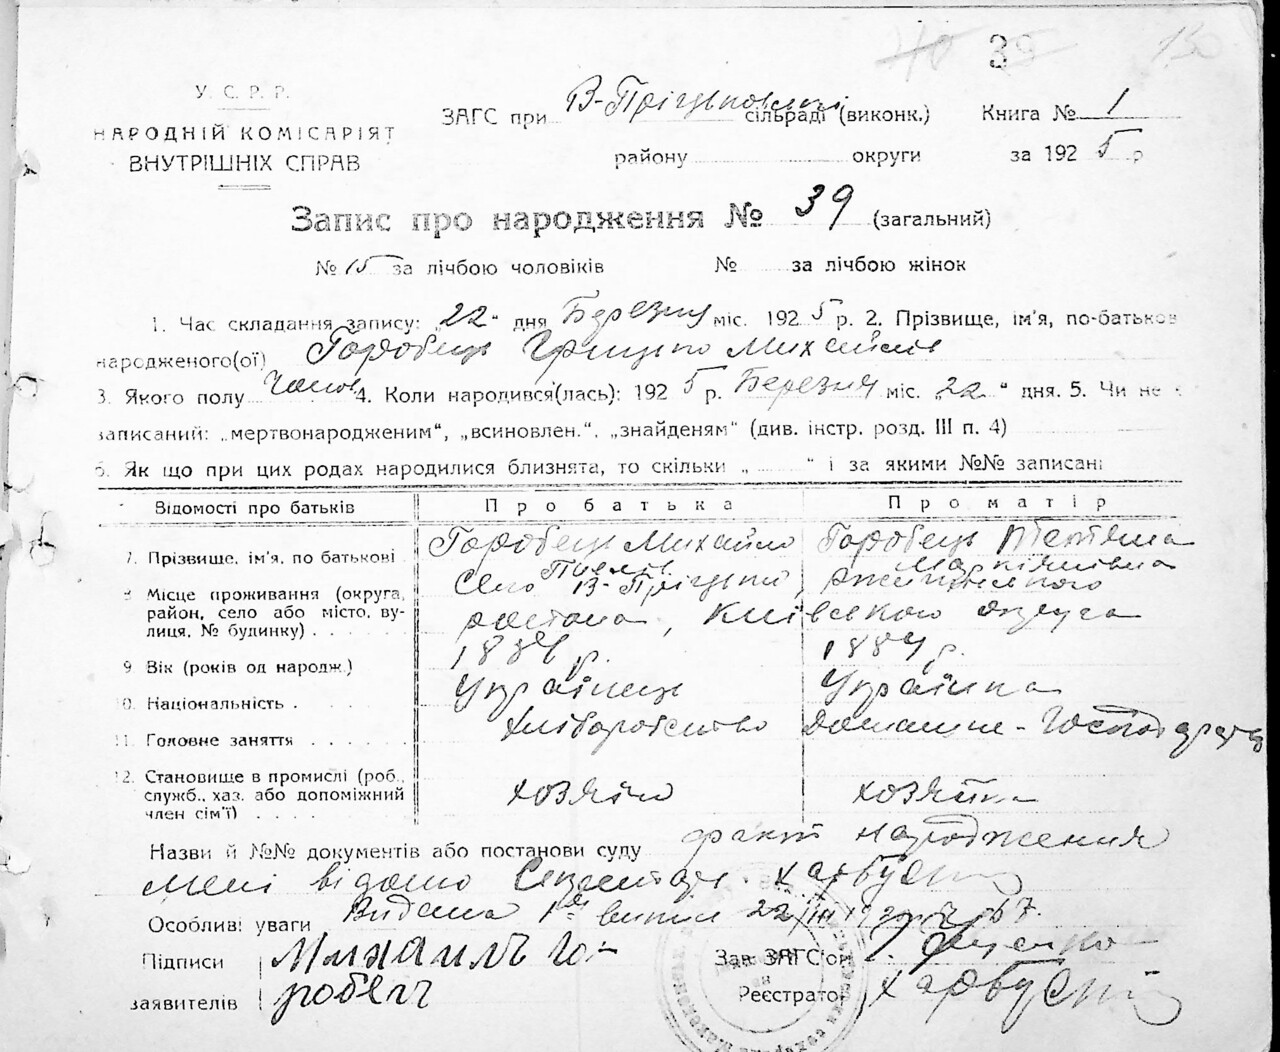 40 39 130
У. С. Р. Р.
НАРОДНІЙ КОМІСАРІЯТ
ВНУТРІШНІХ СПРАВ
ЗАГС при В-Пріцьковскі сільраді (виконк.) Книга № 1
району округи за 1925 р
Запис про народження № 39 (загальний)
№ 15 за лічбою чоловіків № за лічбою жінок
1. Час складання запису: „22“ дня Березня міс. 1925 р. 2. Прізвище, ім'я, по-батьков
народженого(ої) Горобець Грицько Михайлів
3. Якого полу Чолов 4. Коли народився(лась): 1925 р. Березня міс. 22“ дня. 5. Чи не є
записаний: „мертвонародженим“, „всиновлен.“, „знайденям“ (див. інстр. розд. III п. 4)
6. Як що при цих родах народилися близнята, то скільки „ “ і за якими №№ записані
Відомості про батьків Про батька Про матір
7. Прізвище, ім'я, по батькові Горобець Михайло Павлів Горобець Тетяна Маркіянівна
8 Місце проживання (округа, Село В-Пріцьки,
район, село або місто, ву- Київського округа
лиця, № будинку)
9. Вік (років од народж.) 188 р. 1884 р.
10. Національність Українець Українка
11. Головне заняття Хліборобство Домашне-Господарств
12. Становище в промислі (роб., хозяїн хозяйка
служб., хаз. або допоміжний
член сім'ї)
Назви й №№ документів або постанови суду факт народження
мені відомо Секретарь Харбу
Особливі уваги Видана 1 випис 22/III 192 р № 67.
Підписи Михаилъ Го-
заявителів робец
Зав. ЗАГС'ом
Реєстратор Харбу